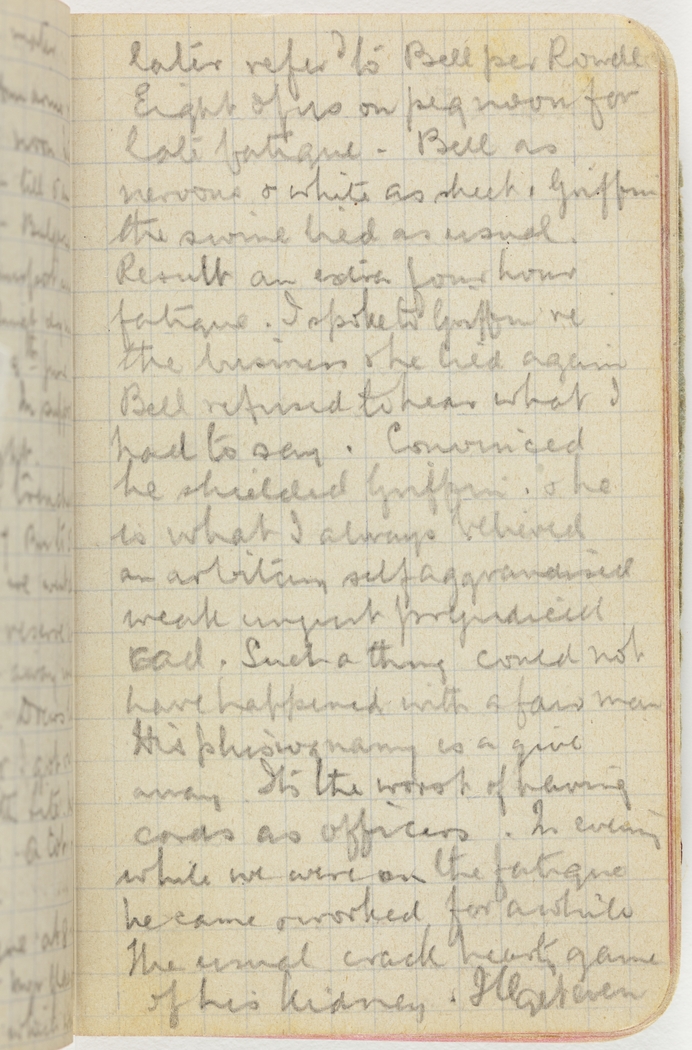 later refer'd to Bell per Rowell
Eight of us on peg noon for
late fatigue - Bell as
nervous & white as sheet. Griffin
the swine lied as usual.
Result an extra four hour
fatigue. I spoke to Griffin re
the business & he lied again
Bell refused to hear what I
had to say. Convinced
he shielded Griffin. & he
is what I always believed
an arbitary self aggrandised
weak unjust prejudiced
cad. Such a thing could not
have happened with a fair man
His phisiognamy is a give
away Its the worst of having
cads as officers. In evening
while we were on the fatigue
he came & worked for a while
The usual crack hearty game
of his kidney. I'll get even